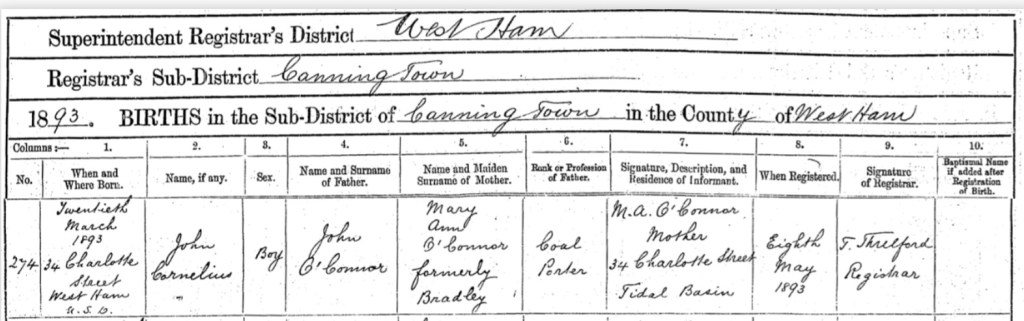 Superintendent Registrar's District West Ham
Registrar's Sub-District Canning Town
1893. BIRTHS in the Sub-District of Canning Town in the County of West Ham
Columns :— 1. 2. 3. 4. 5. 6. 7. 8. 9. 10.
No. When and Where Born. Name, if any. Sex. Name and Surname of Father. Name and Maiden Surname of Mother. Rank or Profession of Father. Signature, Description, and Residence of Informant. When Registered. Signature of Registrar. Baptismal Name if added after Registration of Birth.
274
Twentieth
March
1893
34 Charlotte
Street
West Ham
U.S.D.
John
Cornelius
Boy
John
O'Connor
Mary
Ann
O'Connor
formerly
Bradley
Coal
Porter
M.A. O'Connor
Mother
34 Charlotte Street
Tidal Basin
Eighth
May
1893
T. Threlford
Registrar